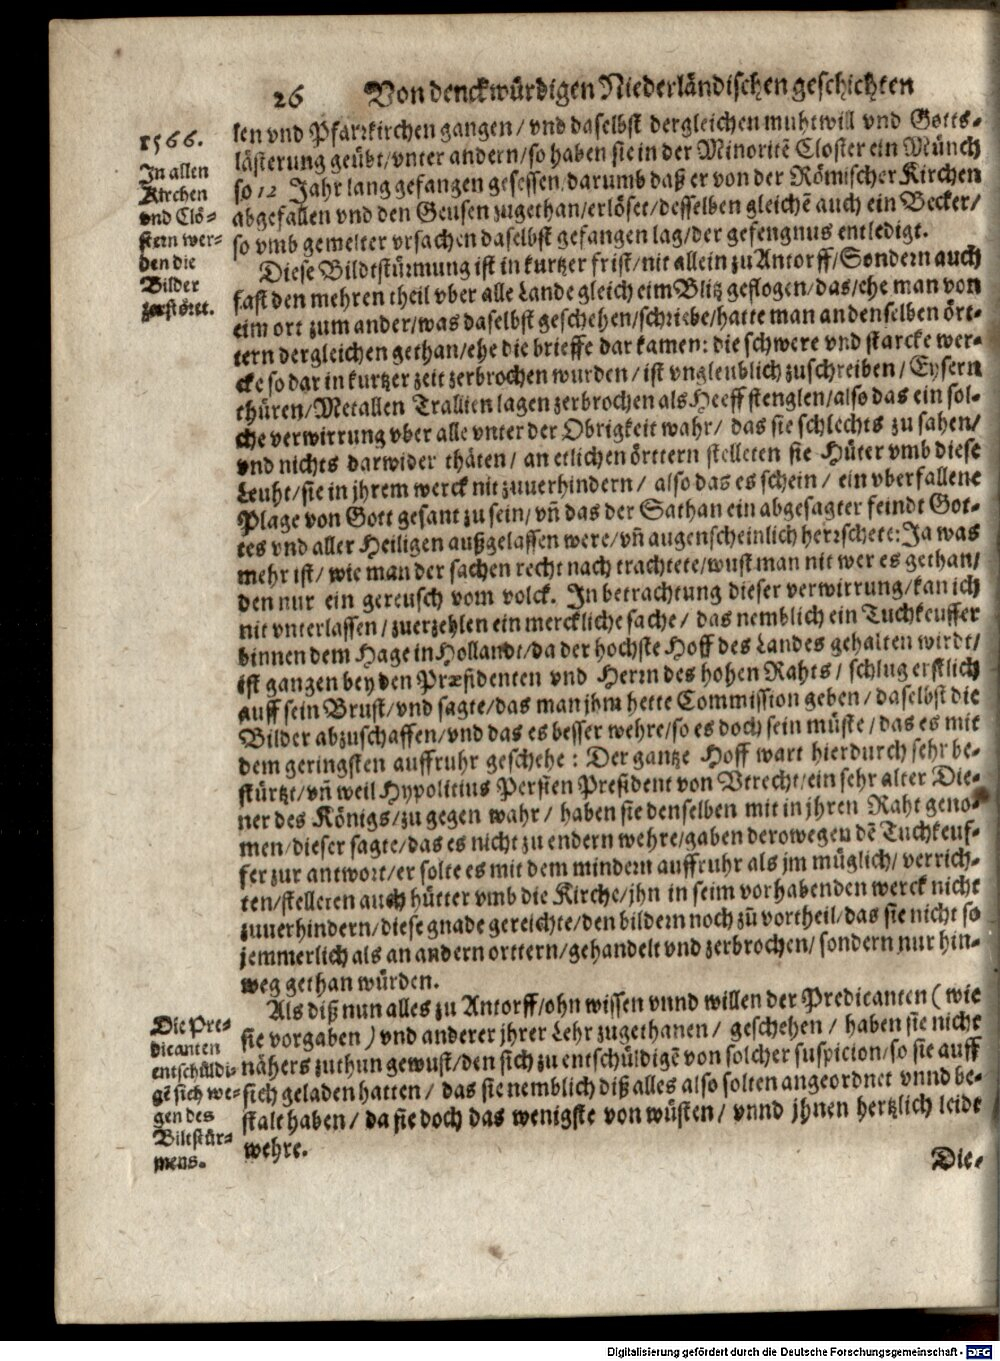 26 Von denckwürdigen Niederländischen geschichten
1566.
In allen
Kirchen
vnd Clö-
stern wer-
den die
Bilder
zerstört.
len vnd Pfarrkirchen gangen/ vnd daselbst dergleichen muhtwill vnd Gotts-
lästerung geübt/vnter andern/so haben sie in der Minoritē Closter ein Münch
so 12 Jahr lang gefangen gesessen/darumb daß er von der Römischer Kirchen
abgefallen vnd den Geusen zugethan/erlöset/desselben gleichē auch ein Becker/
so vmb gemelter vrsachen daselbst gefangen lag/der gefengnus entledigt.
Diese Bildtstürmung ist in kurtzer frist/nit allein zu Antorff/Sondern auch
fast den mehren theil vber alle Lande gleich eim Blitz geflogen/das/ehe man von
eim ort zum ander/was daselbst geschehen/schriebe/hatte man an denselben ört-
tern dergleichen gethan/ehe die brieffe dar kamen: die schwere vnd starcke wer-
cke so dar in kurtzer zeit zerbrochen wurden/ ist vngleublich zuschreiben/ Eysern
thüren/Metallen Trallien lagen zerbrochen als Heeff stenglen/also das ein sol-
che verwirrung vber alle vnter der Obrigkeit wahr/ das sie schlechts zu sahen/
vnd nichts darwider thäten/ an etlichen örttern stelleten sie Hüter vmb diese
Leuht/sie in jhrem werck nit zuuerhindern/ also das es schein/ ein vberfallene
Plage von Gott gesant zu sein/ vñ das der Sathan ein abgesagter feindt Got-
tes vnd aller Heiligen außgelassen were/vñ augenscheinlich herrschete: Ja was
mehr ist/ wie man der sachen recht nach trachtete/wust man nit wer es gethan/
den nur ein gereusch vom volck. In betrachtung dieser verwirrung/kan ich
nit vnterlassen/zuerzehlen ein merckliche sache/ das nemblich ein Tuchkeuffer
binnen dem Hage in Hollandt/da der hochste Hoff des Landes gehalten wirdt/
ist gangen bey den Præsidenten vnd Herrn des hohen Rahts/ schlug erstlich
auff sein Brust/vnd sagte/das man jhm hette Commission geben/daselbst die
Bilder abzuschaffen/vnd das es besser wehre/so es doch sein müste/das es mit
dem geringsten auffruhr geschehe: Der gantze Hoff wart hierdurch sehr be-
stürtzt/vñ weil Hypolitius Persten President von Vtrecht/ein sehr alter Die-
ner des Königs/zu gegen wahr/ haben sie denselben mit in jhren Raht geno-
men/dieser sagte/das es nicht zu endern wehre/gaben derowegen dē Tuchkeuf-
fer zur antwort/er solte es mit dem mindern auffruhr als jm müglich/verrich-
ten/stelleten auch hütter vmb die Kirche/jhn in seim vorhabenden werck nicht
zuuerhindern/diese gnade gereichte/den bildern noch zū vortheil/das sie nicht so
jemmerlich als an andern orttern/gehandelt vnd zerbrochen/ sondern nur hin-
weg gethan würden.
Die Pre-
dicanten
entschüldi-
gē sich we-
gen des
Biltstür-
mens.
Als diß nun alles zu Antorff/ohn wissen vnnd willen der Predicanten (wie
sie vorgaben) vnd anderer jhrer Lehr zugethanen/ geschehen/ haben sie nicht
nähers zuthun gewust/den sich zu entschüldigē von solcher suspicion/so sie auff
sich geladen hatten/ das sie nemblich diß alles also solten angeordnet vnnd be-
stalt haben/ da sie doch das wenigste von wüsten/ vnnd jhnen hertzlich leidt
wehre.
Die-
Digitalisierung gefördert durch die Deutsche Forschungsgemeinschaft - DFG